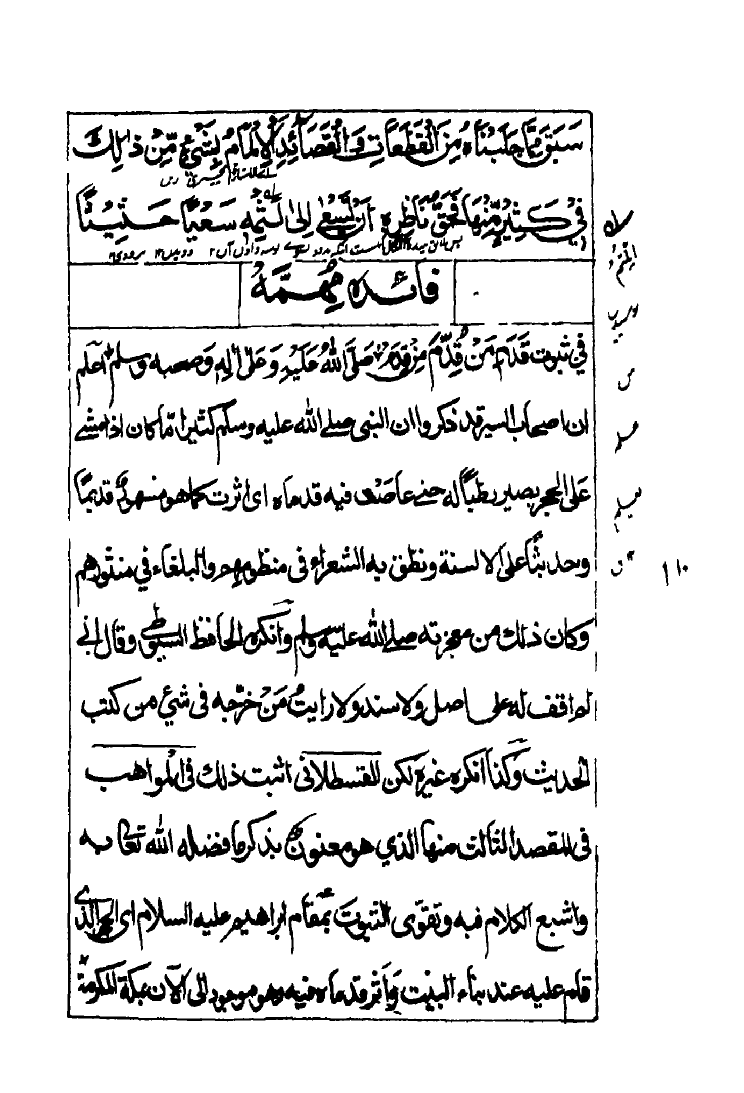 سَبَقَ مِمَّا جَلَبْنَاهُ مِنَ الْقَطَعَاتِ وَ الْقَصَائِدِ الْإِلْمَامُ بِشَيْءٍ مِّنْ ذٰلِكَ
فِي كَثِيْرٍ مِّنْهَا فَحَقَّ نَاظِرِهٖ اَنْ يَّسْعٰى اِلٰى لَثْمِهٖ سَعْيًا حَثِيْثًا
فائدہ مُهِمَّةٌ
في ثبوت قَدَمِ مَنْ قَدَّمَ مِنْ قِدَمٍ صَلَّى اللّٰهُ عَلَيْهِ وَ عَلٰى اٰلِهٖ وَصحبه وسلم اعلم
ان اصحاب السير قد ذكروا ان النبي صلے الله عليه وسلم كثيرًا مّا كان اذا مشے
على الحجر يصير رطبًا له حتى غاصت فيه قدماه اى اثرت كما هو مشهور قديمًا
وحديثًا على الالسنة ونطق به الشعراء فى منظومهم والبلغاء في منثورهم
وكان ذلك من معجزته صلے الله عليه وسلم وانكره الحافظ السيوطى وقال انى
لم اقف له على اصل ولا سند ولا رايتُ مَنْ خرّجه فى شيءٍ من كتب
الحديث وكذا انكره غيره لكن القسطلانى اثبت ذلك فى المواهب
فى المقصد الثالث منها الذي هو معنون بذكر ما فضله الله تعالى به
واشبع الكلام فيه وتقوّى الثبوت بمقام ابراهيم عليه السلام اى الحجر الذى
قام عليه عند بناء البيت وأثر قدماه فيه وهو موجود الى الآن بمكة المكرمة
١١٠